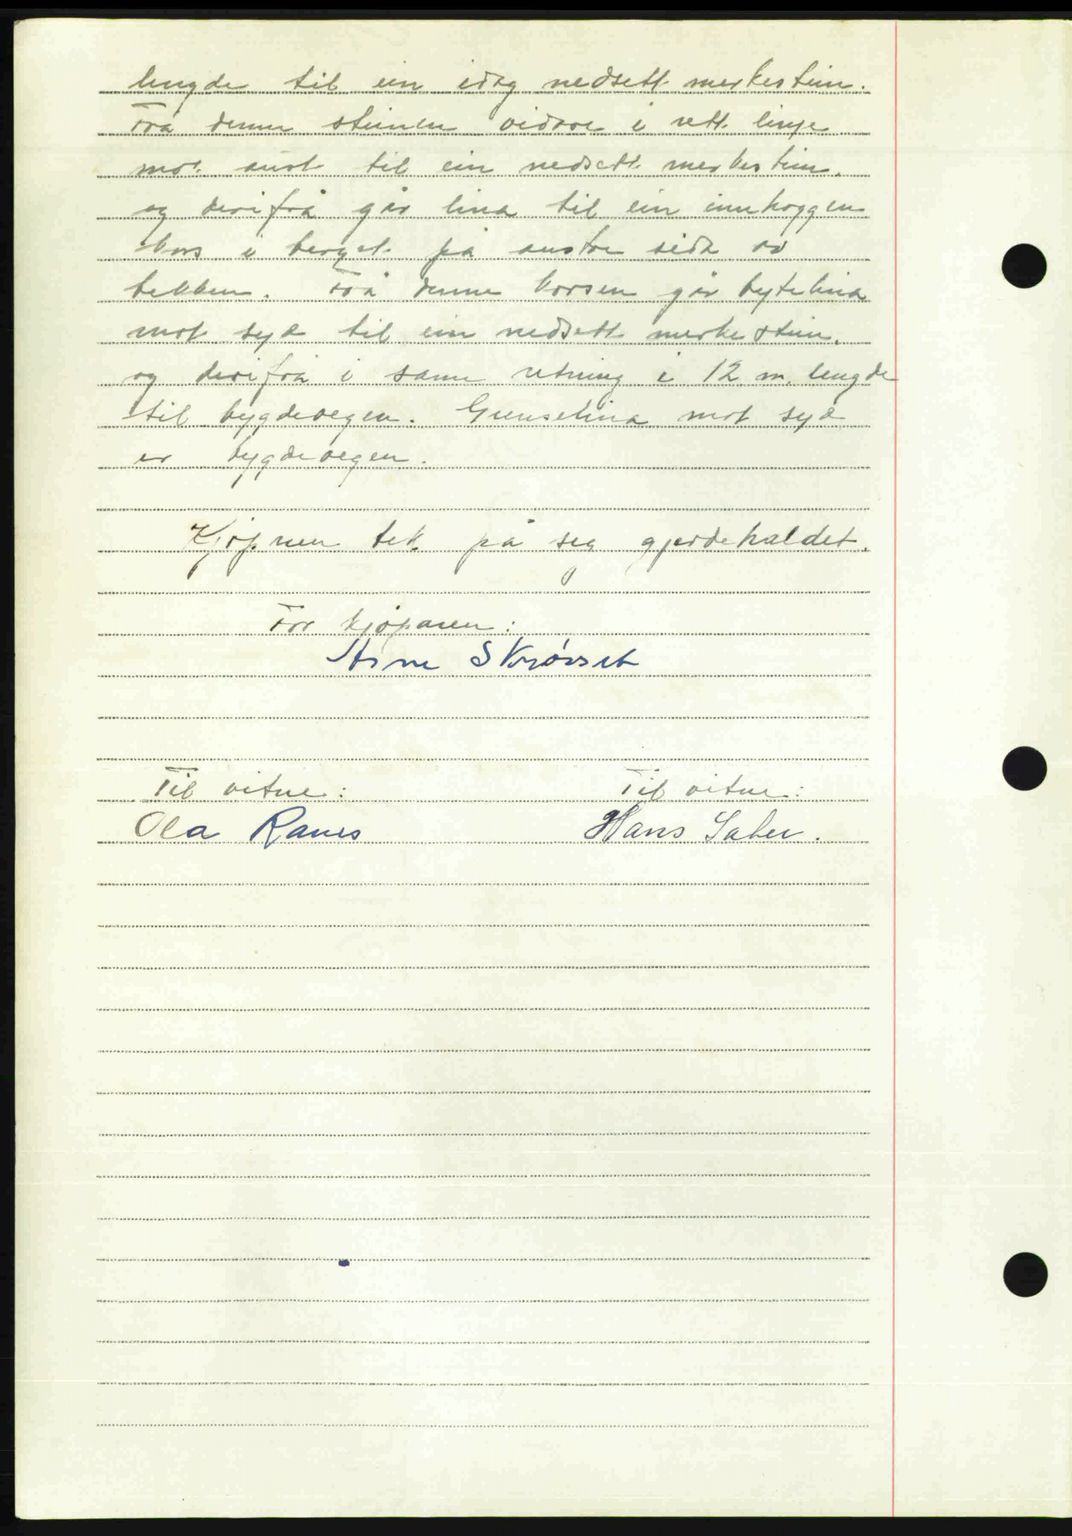 lengde til ein idag nedsett merkestein.
Frå denne steinen vidare i rett linje
mot aust til ein nedsett merkestein,
og derifrå går lina til ein innhoggen
kors i berget på austre sida av
bekken. Frå denne korsen går bytelina
mot syd til ein nedsett merkestein,
og derifrå i same retning i 12 m. lengde
til bygdevegen. Grenselina mot syd
er bygdevegen.
Kjøparen tek på seg gjerdehaldet.
For kjøparen:
Arne Skrøvset
Til vitne: Til vitne:
Ola Ranes Hans Sæter.